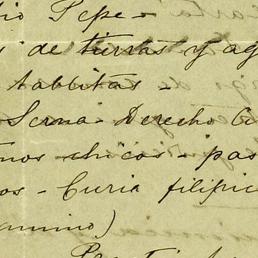 dio Pepe -
s de tierras y ag
tablitas -
Serna - Derecho Ca
mos chicos - pas
os - Curia filipic
amino)